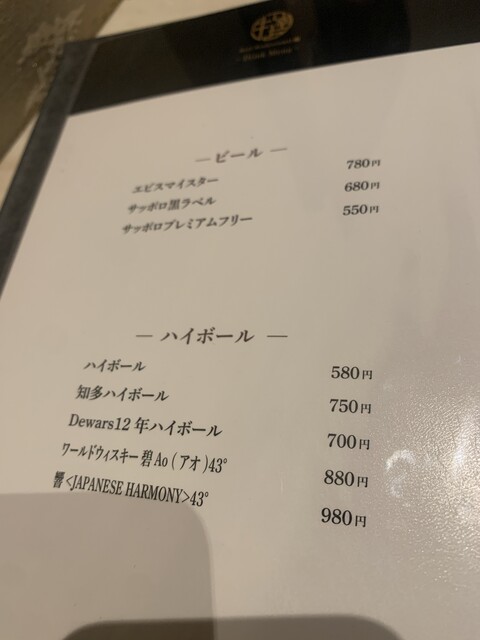 Drink Menu
— ビール —
エビスマイスター 780円
サッポロ黒ラベル 680円
サッポロプレミアムフリー 550円
— ハイボール —
ハイボール 580円
知多ハイボール 750円
Dewars12年ハイボール 700円
ワールドウィスキー碧Ao（アオ）43° 880円
響<JAPANESE HARMONY>43° 980円